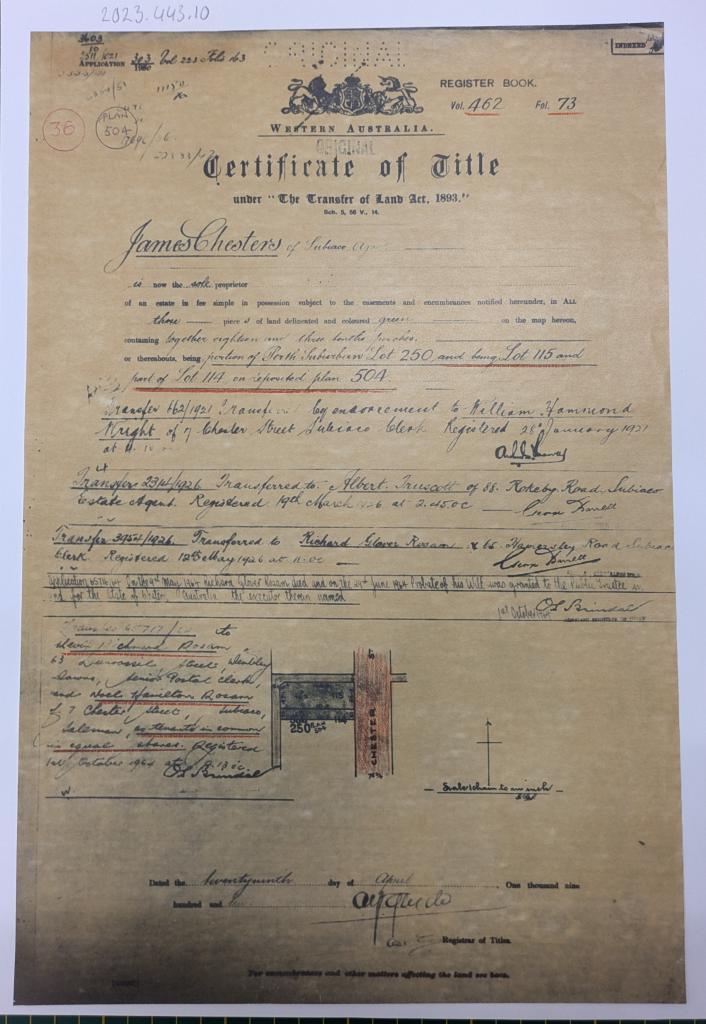 2023.443.10
3603/10
2511/1921
APPLICATION 303/1900 Vol 223 Folio 163
ORIGINAL
INDEXED
REGISTER BOOK.
Vol. 462 Fol. 73
36
PLAN 504
WESTERN AUSTRALIA.
ORIGINAL
Certificate of Title
under "The Transfer of Land Act, 1893."
Sch. 5, 56 V., 14.
James Chesters of Subiaco
is now the sole proprietor
of an estate in fee simple in possession subject to the easements and encumbrances notified hereunder, in ALL
those pieces of land delineated and coloured green on the map hereon,
containing together eighteen and three tenths perches.
or thereabouts, being portion of Perth Suburban Lot 250 and being Lot 115 and
part of Lot 114 on deposited plan 504.
Transfer 662/1921 Transferred by endorsement to William Hammond
Wright of 7 Chester Street Subiaco Clerk Registered 28th January 1921
at
Transfer 2314/1926 Transferred to Albert Truscott of 88 Rokeby Road Subiaco
Estate Agent. Registered 19th March 1926 at 2.45 oc
Transfer 3954/1926. Transferred to Richard Glover Rosam of 65 Hamersley Road Subiaco
Clerk. Registered 12th May 1926 at 11. oc
On the 4th May 1964 Richard Glover Rosam died and on the 24th June 1964 Probate of his Will was granted to the Public Trustee in
and for the State of Western Australia the executor therein named
1st October 1964
Transfer to
Richmond Rosam
63 Street, Wembley
Downs, Senior Postal Clerk,
and Noel Hamilton Rosam
of 7 Chester Street, Subiaco,
Salesman, as tenants in common
in equal shares. Registered
1st October 1964 at 9.13 oc
115
114
250
CHESTER ST
Scale 1 chain to an inch
Dated the twentyninth day of April One thousand nine
hundred and
Registrar of Titles.
For encumbrances and other matters affecting the land see back.